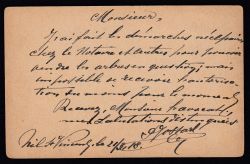 Monsieur,
J'ai fait les démarches nécessaires
chez le Notaire et autres pour pouvoir
vendre les arbres en question, mais
impossible de recevoir l'autorisa-
tion du moins pour le moment.
Recevez, Monsieur
mes salutations distinguées
le